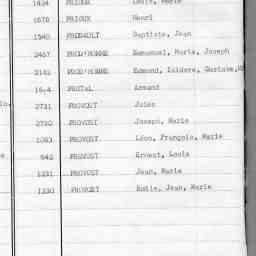 1424 PRIOUX Louis, Marie
1678 PRIOUX Henri
1540 PROBAULT Baptiste, Jean
2467 PROD'HOMME Emmanuel, Marie, Joseph
2142 PROD'HOMME Edmond, Isidore, Gustave,
PROTAL Armand
2731 PROVOST Jules
2730 PROVOST Joseph, Marie
1083 PROVOST Léon, François, Marie
642 PROVOST Ernest, Louis
1231 PROVOST Jean, Marie
1230 PROVOST Emile, Jean, Marie